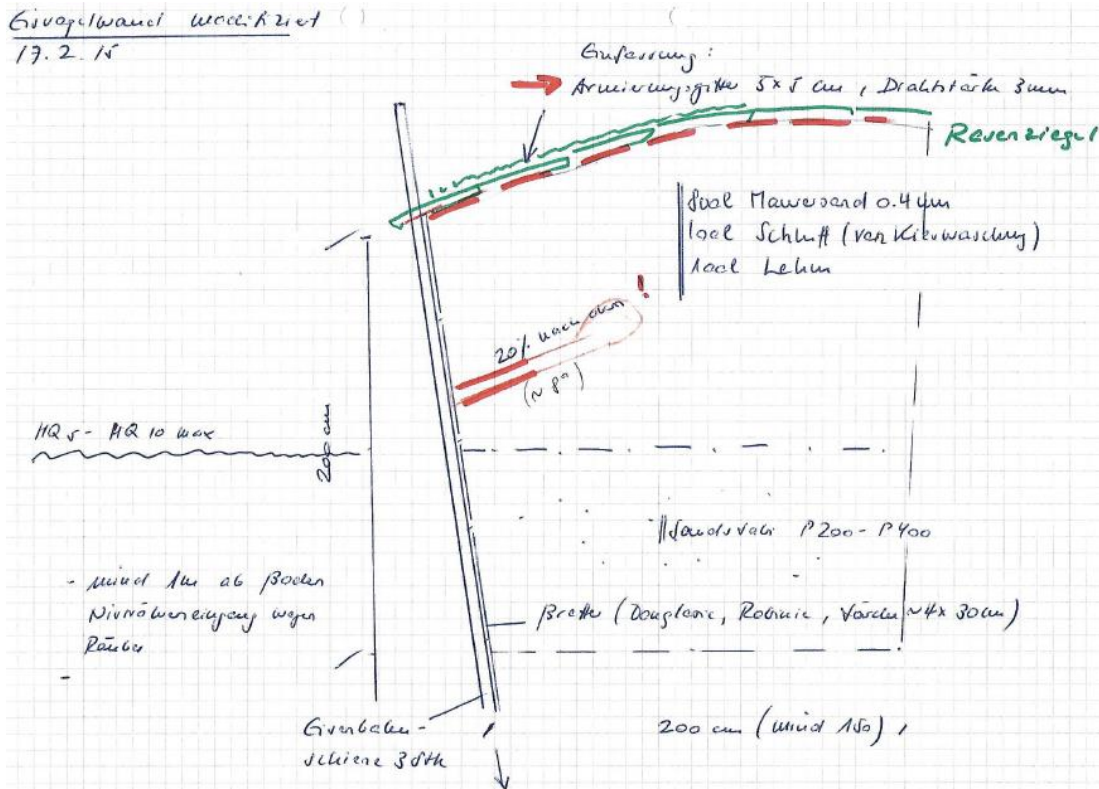 Eisvogelwand modifiziert
17.2.15
Einfassung:
Armierungsgitter 5x5 cm, Drahtstärke 3mm
Rasenziegel
80al Mauersand 0.4
10al Schluff (von Kieswaschung)
10al Lehm
20% nach oben !
(~ 8°)
HQ5 - HQ10 max
200 cm
- mind 1m ab Boden
Nisröhreneingang wegen
Räuber
-
P200 - P400
Bretter (Douglasie, Robinie, Lärche ~4x30cm)
Eisenbahn-
schiene 3 Stk
200 cm (mind 150)